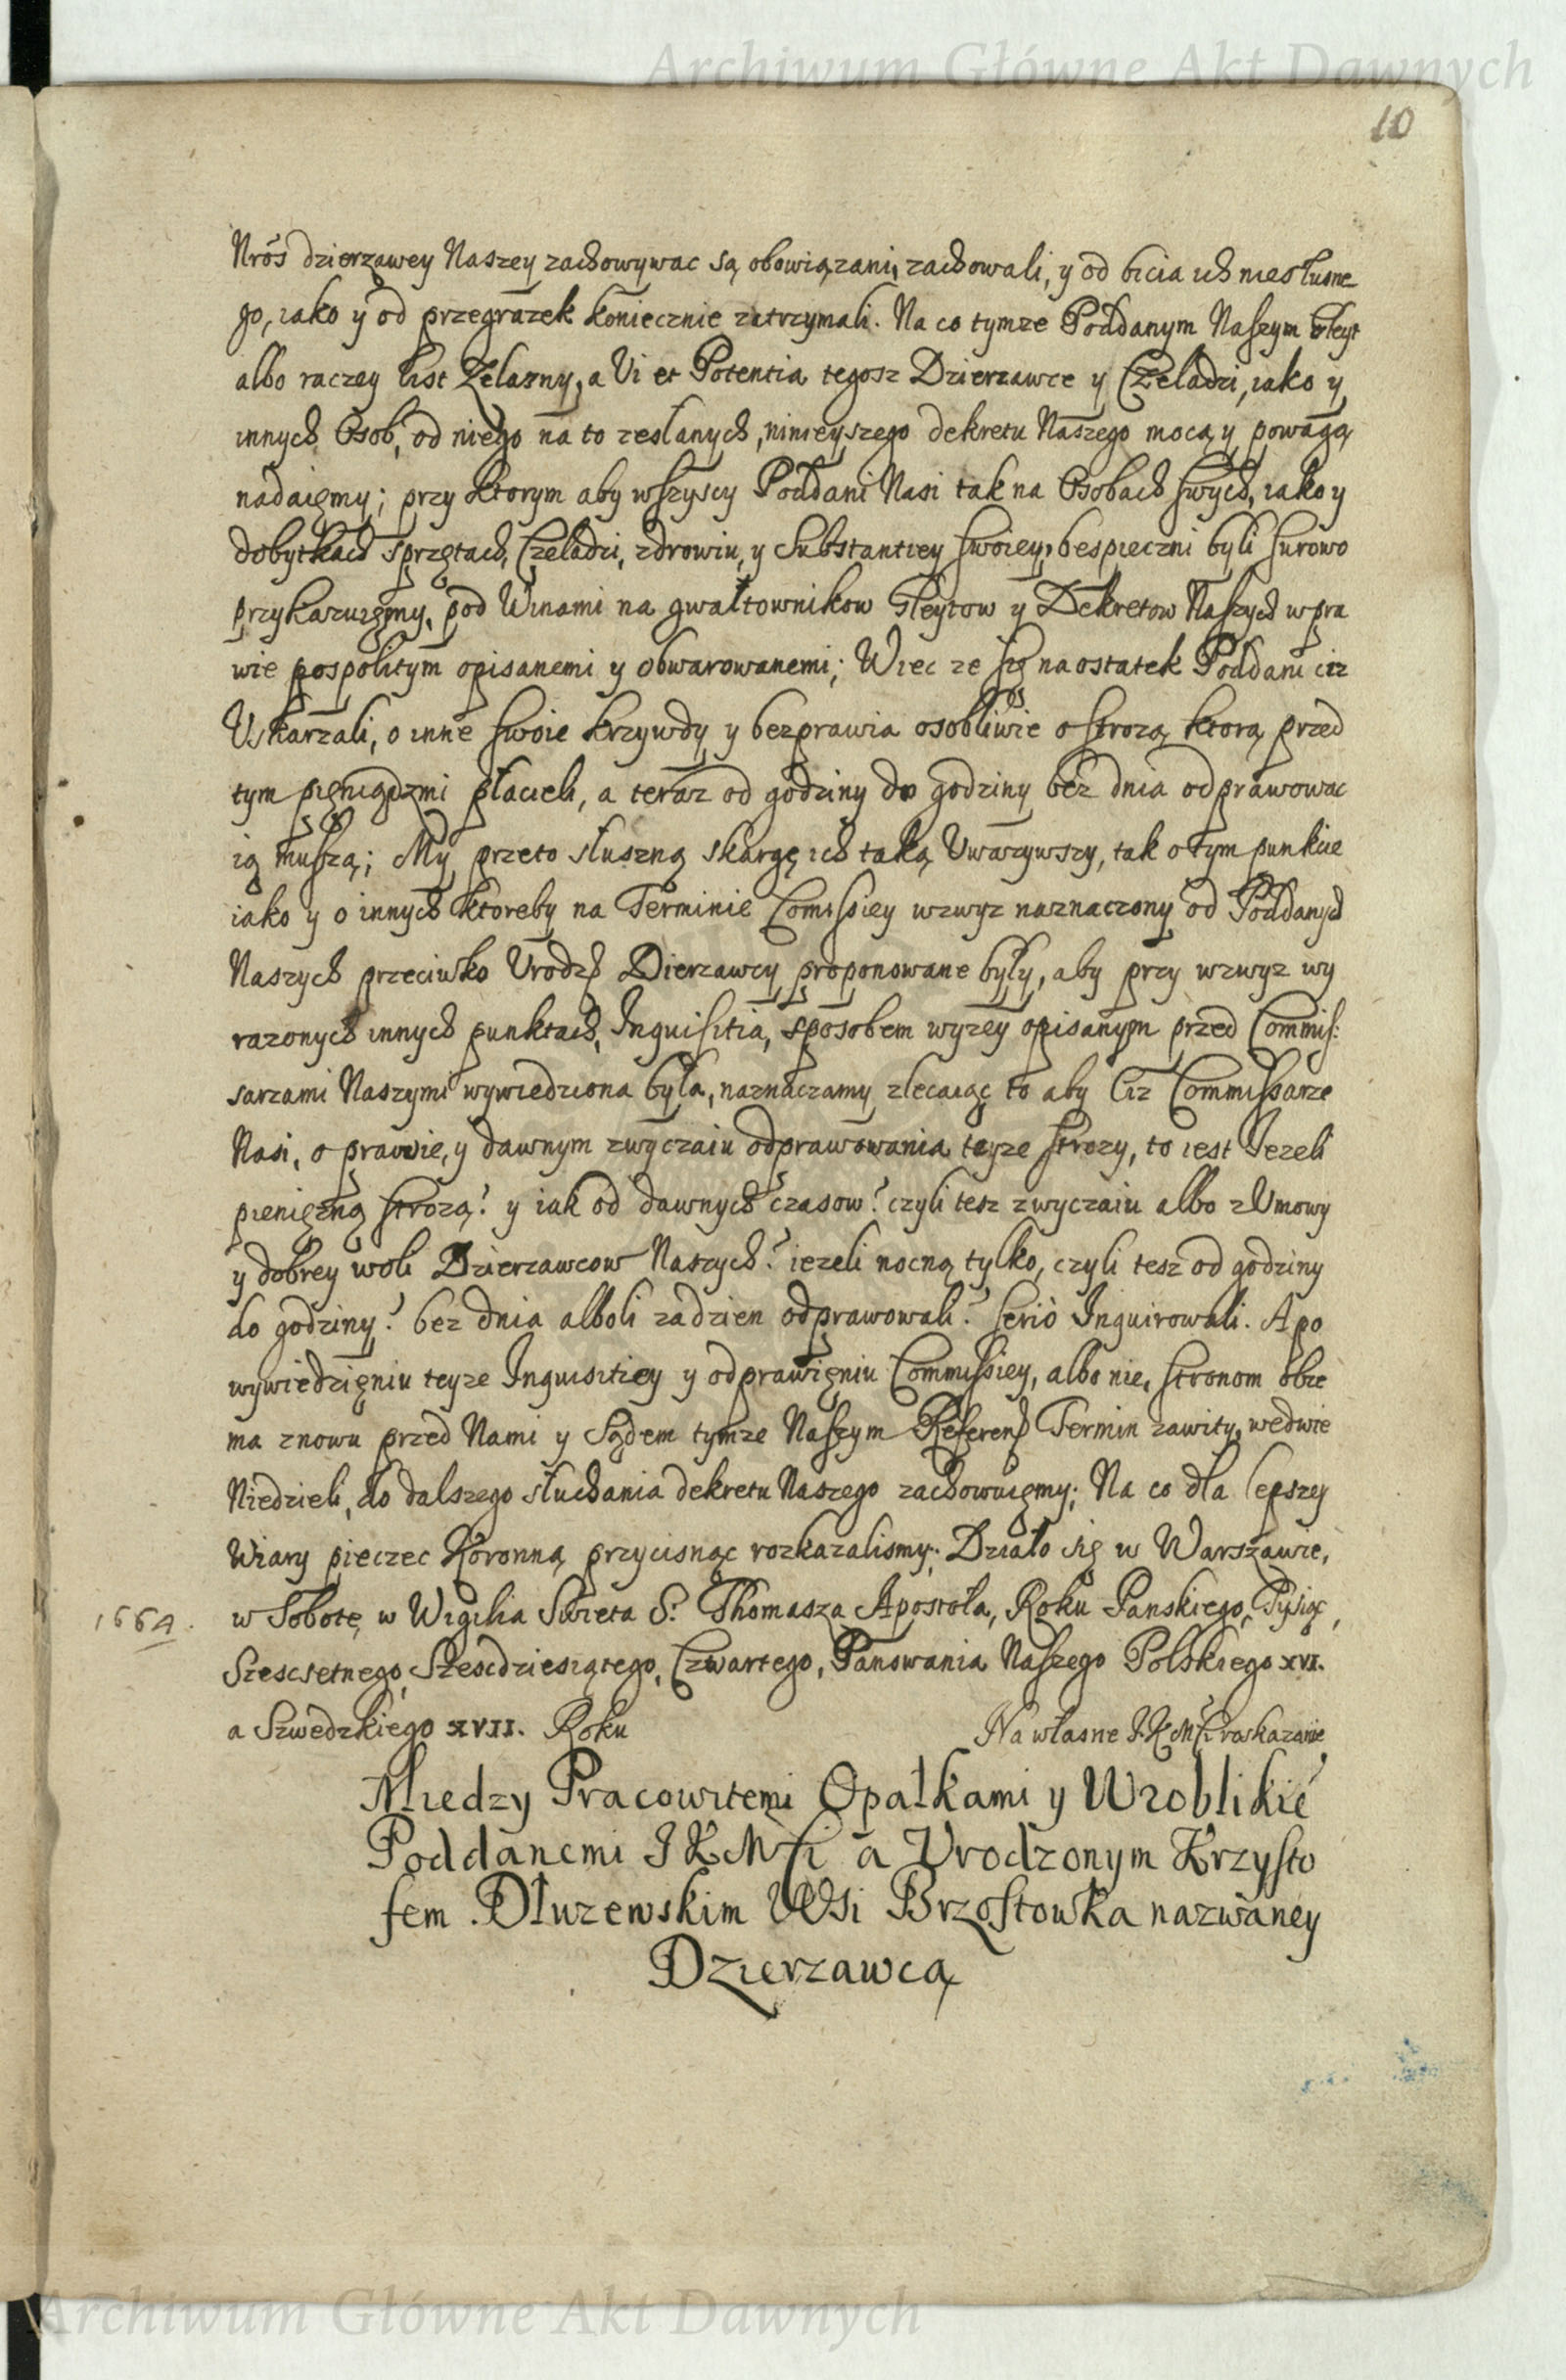 Archiwum Główne Akt Dawnych
10
Nros dzierzawey Naszey zachowywac są obowiązani, zachowali, y od bicia ich niesłuszne
go, iako y od przegrazek koniecznie zatrzymali. Na co tymze Poddanym Naszym Gleyt
albo raczey list Zelazny, a Vi et Potentia tegosz Dzierzawce y Czeladzi, iako y
innych Osob, od niego na to zesłanych, ninieyszego dekretu Naszego mocą y powagą
nadaięmy; przy ktorym aby wszyscy Poddani Nasi tak na Osobach swych, iako y
dobytkach sprzętach, Czeladzi, zdrowiu, y Substantiey swoiey, bespieczni byli surowo
przykazuięmy, pod Winami na gwałtownikow Gleytow y Dekretow Naszych w pra
wie pospolitym opisanemi y obwarowanemi; Wiec ze się na ostatek Poddani ciz
Uskarzali, o inne swoie krzywdy y bezprawia osobliwie o strozą ktorą przed
tym pięniądzmi płacieli, a teraz od godziny do godziny bez dnia odprawowac
ią muszą; My przeto słuszną skargę ich taką Uwazywszy, tak o tym punkcie
iako y o innych ktoreby na Terminie Comissiey wzwyz naznaczony od Poddanych
Naszych przeciwko Urodz Dierzawcy proponowane były, aby przy wzwyz wy
razonych innych punktach, Inquisitia, sposobem wyzey opisanym przed Commis:
sarzami Naszymi wywiedziona była, naznaczamy zlecaiąc to aby Ciz Commissarze
Nasi, o prawie, y dawnym zwyczaiu odprawowania teyze strozy, to iest Iezeli
pienięzną strozą? y iak od dawnych czasow? czyli tesz zwyczaiu albo z Umowy
y dobrey woli Dzierzawcow Naszych? iezeli nocną tylko, czyli tesz od godziny
do godziny? bez dnia alboli za dzien odprawowali? serio Inquirowali. A po
wywiedzięniu teyze Inquisitiey y odprawięniu Commissiey, albo nie, stronom obie
ma znowu przed Nami y Sądem tymze Naszym Referen Termin zawity, we dwie
Niedzieli, do dalszego słuchania dekretu Naszego zachowuięmy; Na co dla lepszey
Wiary pieczec Koronną przycisnąc rozkazalismy. Działo się w Warszawie,
w Sobotę w Wigilia Swieta S. Thomasza Apostoła, Roku Panskiego, Tysiąc,
1664.
Szescsetnego, Szescdziesiątego, Czwartego, Panowania Naszego Polskiego XVI.
a Szwedzkiego XVII. Roku
Na własne J.K.Mści roskazanie
Miedzy Pracowitemi Opałkami y Wroblikie
Poddanemi J K Mści a Vrodzonym Krzysto
fem Dłuzewskim Wsi Brzostowka nazwaney
Dzierzawcą
Archiwum Główne Akt Dawnych